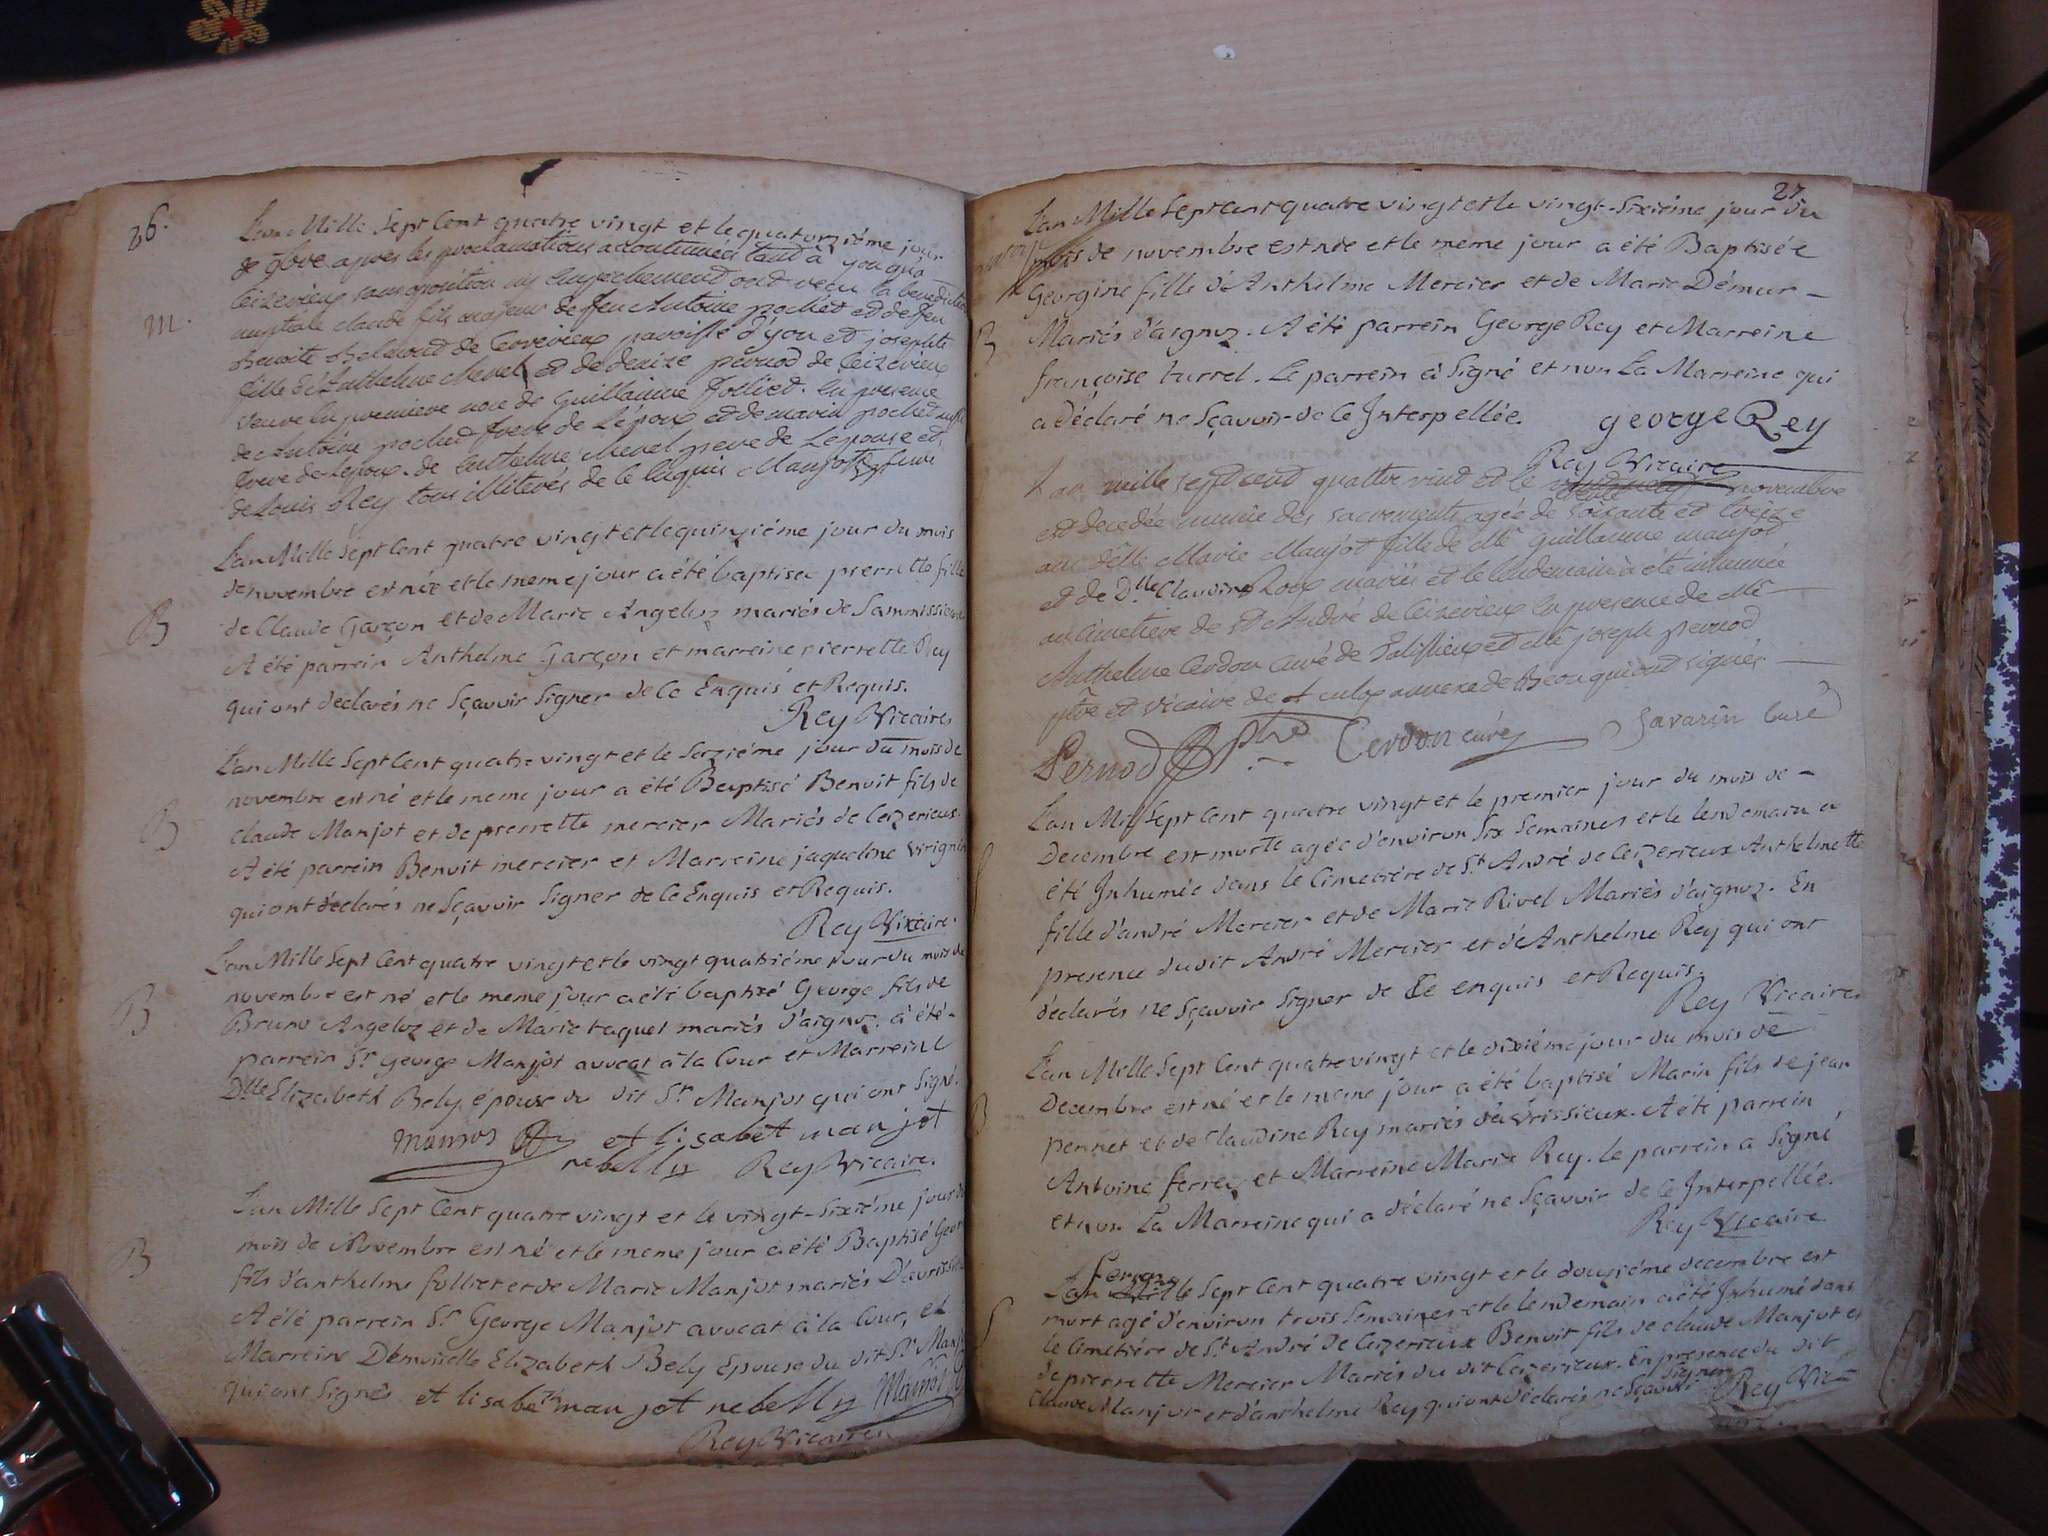 26.
L'an Mille Sept Cent quatre vingt et le quatorziéme jour
de 9bre apres les proclamations accoutumées tant a yon qu'a
Ceizerieux sans oposition ni empechement ont reçu la benediction
m.
nuptiale claude fils majeur de feu Antoine pochet et de feu
Benoite de Cerverieux paroisse d'yon et josephte
fille d'Anthelme Mevel et de denize pernod de Ceizerieux
veuve en premiere noce de Guillaume folliet. en presence
de Antoine pochet frere de L'epoux et de marin pochet aussi
frere de lepoux. de Anthelme Mevel pere de Lepouse et
de Louis Rey tous illiterés de ce enquis Manjot
L'an Mille Sept Cent quatre vingt et le quinziéme jour du mois
de novembre est née et le meme jour a été baptisée pierrette fille
B
de Claude Garçon et de Marie Angeloz mariés de Sammissieux
A été parrein Anthelme Garçon et marreine pierrette Rey
qui ont declarés ne Sçavoir Signer de Ce Enquis et Requis.
Rey Vicaire
L'an Mille Sept Cent quatre vingt et le Seiziéme jour du mois de
novembre est né et le meme jour a été Baptisé Benoit fils de
B
claude Manjot et de pierrette mercier Mariés de Ceizerieux.
A été parrein Benoit mercier et Marreine jaqueline
qui ont déclarés ne Sçavoir Signer de Ce Enquis et Requis.
Rey Vicaire.
L'an Mille Sept Cent quatre vingt et le vingt quatriéme jour du mois de
novembre est né et le meme jour a été baptisé George fils de
B
Bruno Angeloz et de Marie taquet mariés d'aignoz. à été
parrein Sr. George Manjot avocat à la Cour et Marreine
Dlle. Elizabeth Bely épouse du dit Sr. Manjot qui ont Signé.
Manjot et lisabet manjot
ne belly Rey Vicaire.
L'an Mille Sept Cent quatre vingt et le vingt-Sixiéme jour du
mois de Novembre est né et le meme jour a été Baptisé
B
fils d'anthelme folliet et de Marie Manjot mariés
A été parrein Sr. George Manjot avocat à la Cour, et
Marreine Démoiselle Elizabeth Bely Epouse du dit Sr.
qui ont Signés et lisabeth manjot ne belly Manjot
Rey Vicaire
27.
L'an Mille Sept Cent quatre vingt et le vingt-Sixiéme jour du
mois de novembre est née et le meme jour a été Baptisée
Georgine fille d'Anthelme Mercier et de Marie Démur -
B
Mariés d'aignoz. A été parrein George Rey et Marreine
françoise turrel. Le parrein a Signé et non La Marreine qui
a déclaré ne Sçavoir de Ce Interpellée. george Rey
Rey Vicaire
L'an mille sept cent quattre vint et le novembre
est decedée munie des sacrements agée de soixante et treize
ans Delle Marie Manjot fille de Me Guillaume manjot
et de Dlle Claudine Roux mariés et le lendemain a été inhumée
au cimetiere de St Andre de Ceizerieux en presence de Me
Anthelme Cerdon Curé de Talissieux et Me joseph pernod
ptre et vicaire de annexe de Beon qui ont signés
Pernod Ptre Cerdon curé Savarin Curé
L'an Mil Sept Cent quatre vingt et le premier jour du mois de -
Decembre est morte agée d'environ Six Semaines et le lendemain a
S
été Inhumée dans le Cimetiére de St. André de Ceizerieux Anthelmette
fille d'andré Mercier et de Marie Rivel Mariés d'aignoz. En
presence dudit André Mercier et d'Anthelme Rey qui ont
déclarés ne Sçavoir Signer de Ce enquis et Requis.
Rey Vicaire
L'an Mille Sept Cent quatre vingt et le dixiéme jour du mois de
Decembre est né et le meme jour a été baptisé Marin fils de jean
B
pernet et de Claudine Rey mariés d'avrissieux. A été parrein
Antoine ferrer et Marreine Marie Rey. le parrein a Signé
et non La Marreine qui a déclaré ne Sçavoir de Ce Interpellée.
Rey Vicaire
L'an Mille Sept Cent quatre vingt et le douziéme decembre est
S
mort agé d'environ trois Semaines et le lendemain a été Inhumé dans
le Cimetiére de St. André de Ceizerieux Benoit fils de claude Manjot et
de pierrette Mercier Mariés du dit Ceizerieux. En presence du dit
Claude Manjot et d'anthelme Rey qui ont déclarés ne Sçavoir Signer Rey Vic